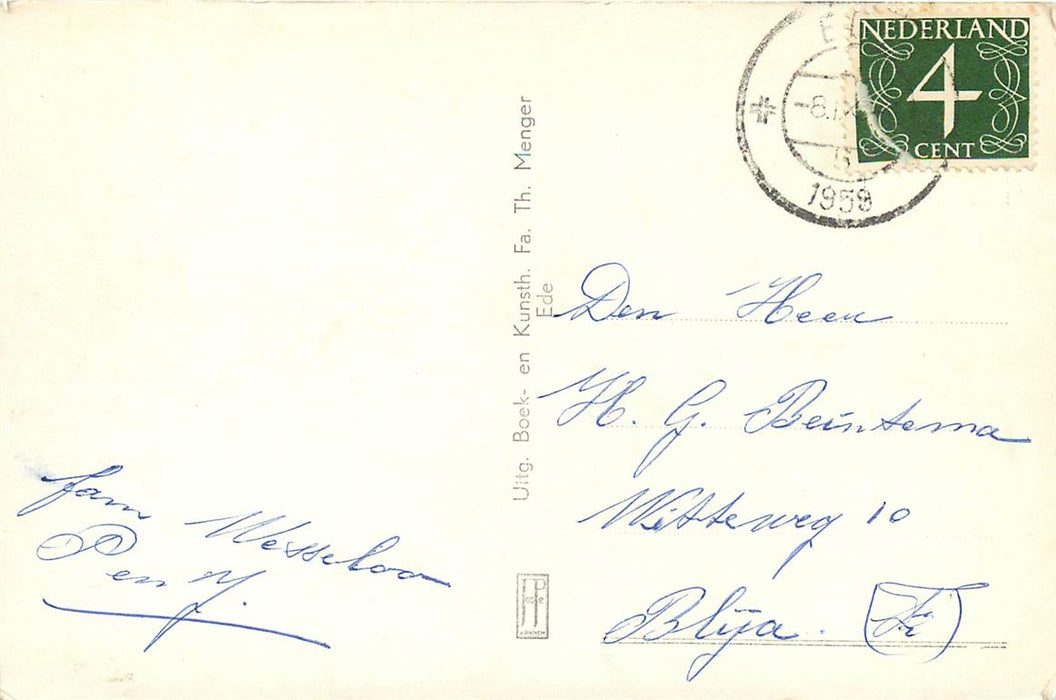 NEDERLAND
4
CENT
1959
Uitg. Boek- en Kunsth. Fa. Th. Menger
Ede
Den Heer
H. G. Beintema
Witteweg 10
Blija. Fr.
fam Wesseloo
P en Y.